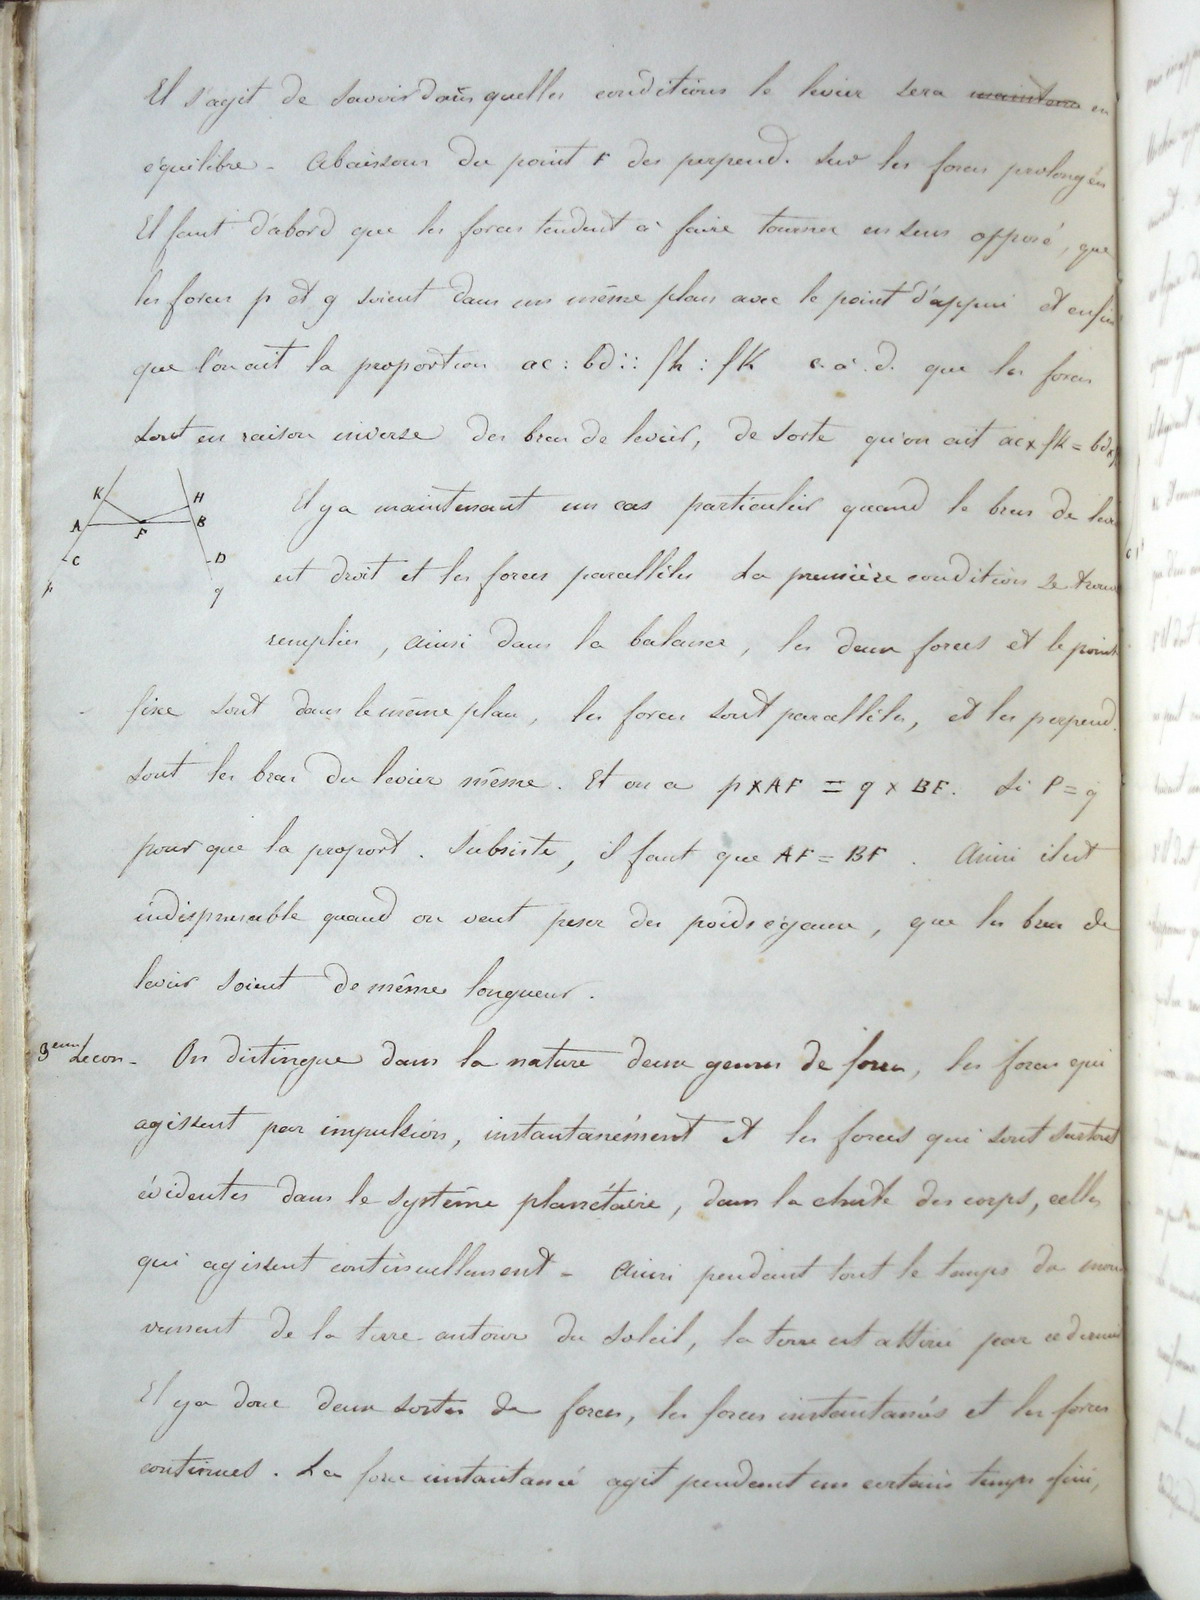 Il s'agit de savoir dans quelles conditions le levier sera maintenu en
équilibre - Abaissons du point F des perpend. sur les forces prolongées
Il faut d'abord que les forces tendent à faire tourner en sens opposé, que
les forces p et q soient dans un même plan avec le point d'appui et enfin
que l'on ait la proportion ac : bd :: fh : fK c. à. d. que les forces
sont en raison inverse des bras de levier, de sorte qu'on ait ac x fK = bd x
K H
A F B
C D
p q
Il y a maintenant un cas particulier quand le bras de levier
est droit et les forces parallèles La première condition se trouve
remplie, ainsi dans la balance, les deux forces et le point
fixe sont dans le même plan, les forces sont parallèles, et les perpend.
sont les bras du levier même. Et on a p x AF = q x BF. Si P = q
pour que la proport. subsiste, il faut que AF = BF . Ainsi il est
indispensable quand on veut peser des poids égaux, que les bras de
levier soient de même longueur.
3eme Lecon - On distingue dans la nature deux genres de forces, les forces qui
agissent par impulsion, instantanément et les forces qui sont surtout
évidentes dans le système planétaire, dans la chute des corps, celles
qui agissent continuellement - Ainsi pendant tout le temps du mou
vement de la terre autour du soleil, la terre est attirée par ce dernier
Il y a donc deux sortes de forces, les forces instantanées et les forces
continues. La force instantanée agit pendant un certain temps fini,